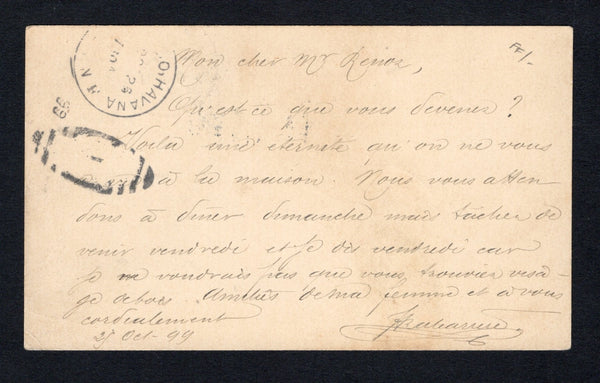 Mon cher Mr Renoz,
Qu'est ce que vous devenez?
Voila une eternité qu'on ne vous
à la maison. Nous vous atten
dons à diner dimanche mais tâchez de
venir vendredi et je dis vendredi car
je ne voudrais pas que vous trouviez visa-
ge de bois. Amitiés de ma femme et à vous
cordialement
Oct-99
HAVANA
99